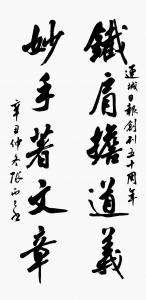 鐵肩擔道義
運城日報創刊五十周年
妙手著文章
辛丑仲冬張西之書